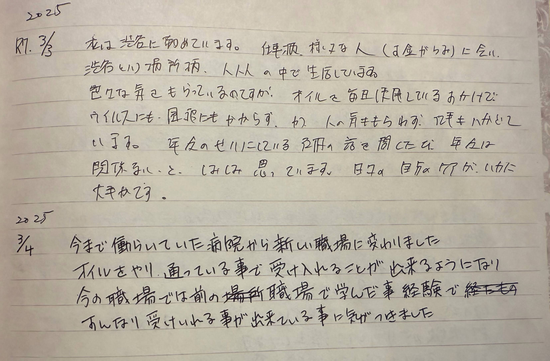 2025
R7. 3/3 私は渋谷に勤めています。仕事柄、様々な人(お金がらみ)に会い、
渋谷という場所柄、人人人の中で生活しています
色々な気をもらっているのですが、オイルを毎日使用しているおかげで
ウイルスにも、風邪にもかからず、かつ人の気ももらわず、仕事もはかどって
います。年令のせいにしている 々の話を聞くたび、年令は
関係ない、と、しみじみ思っています。日々の自分のケアが、いかに
大事かです。
2025
3/4 今まで働らいていた病院から新しい職場に変わりました
オイルをやり、通っている事で受け入れることが出来るようになり
今の職場では前の場所職場で学んだ事経験で
すんなり受けいれる事が出来ている事に気がつきました